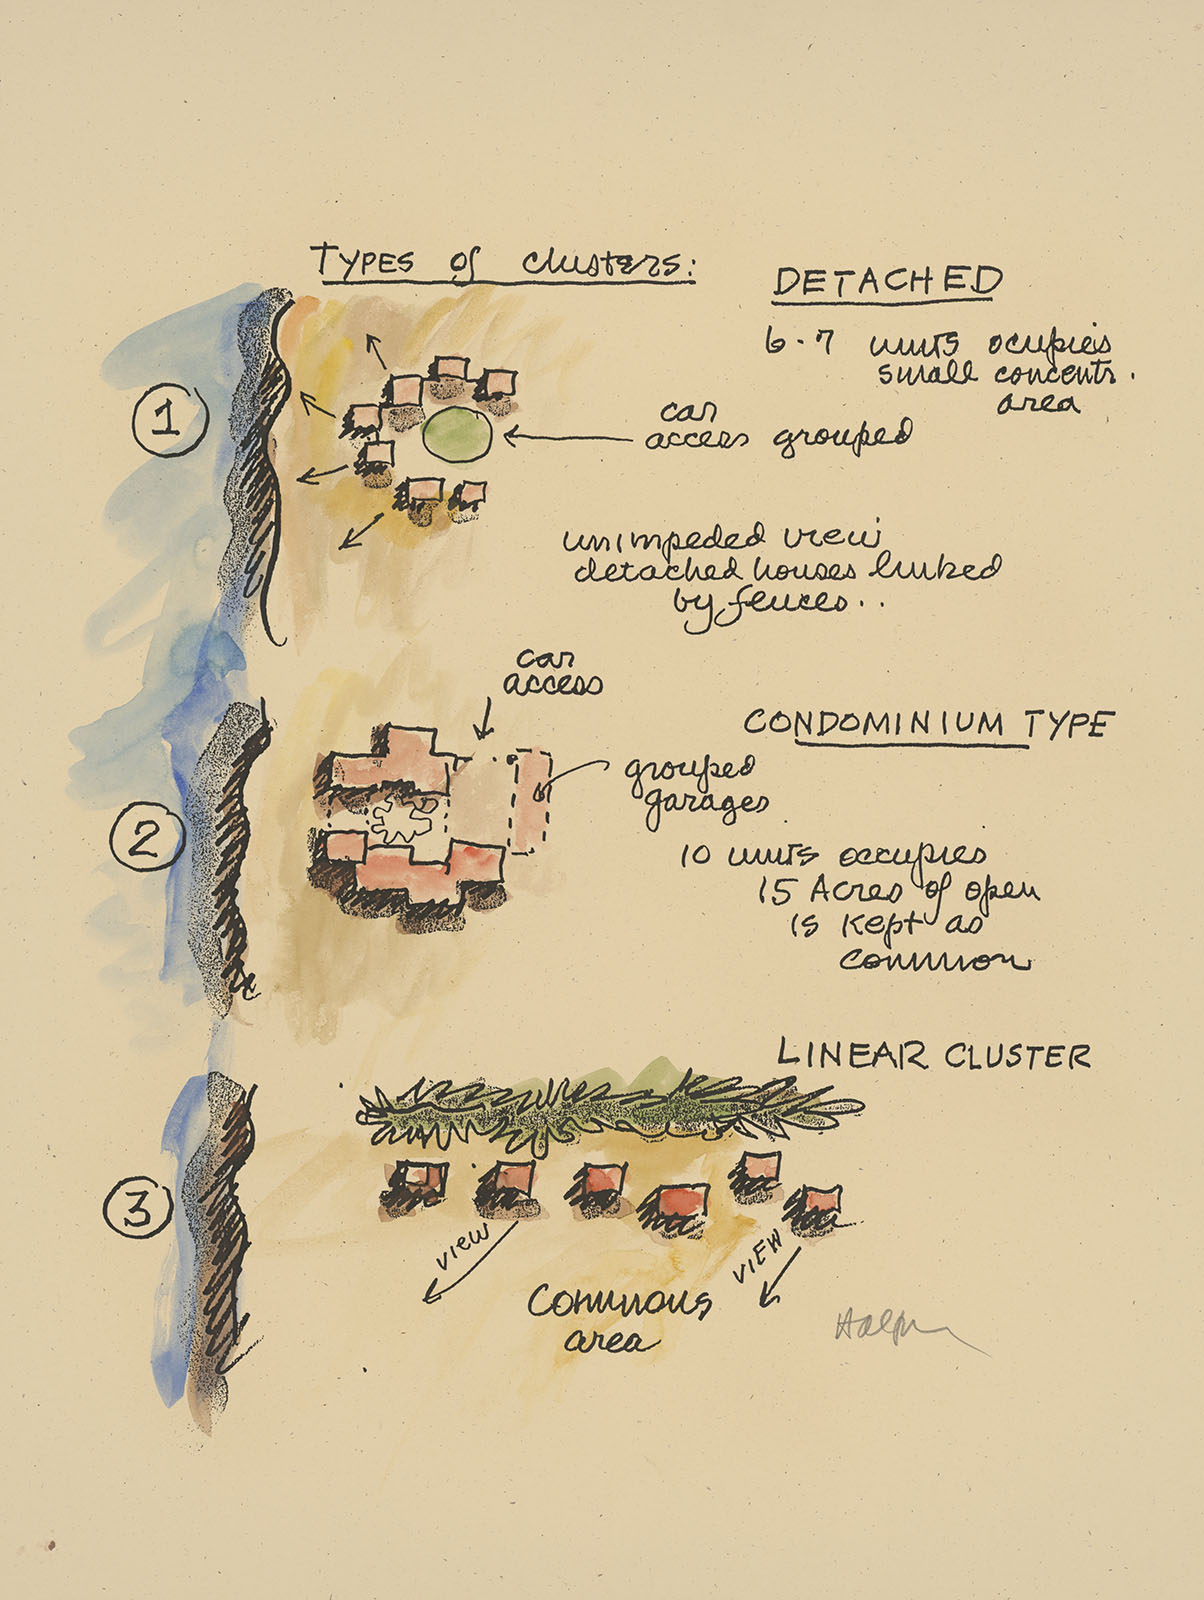 TYPES of clusters:
DETACHED
6-7 units ocupies
small concentr.
area
1
car
access grouped
unimpeded view
detached houses linked
by fences..
car
access
CONDOMINIUM TYPE
grouped
garages
2
10 units occupies
15 Acres of open
is kept as
common
LINEAR CLUSTER
3
view
VIEW
area